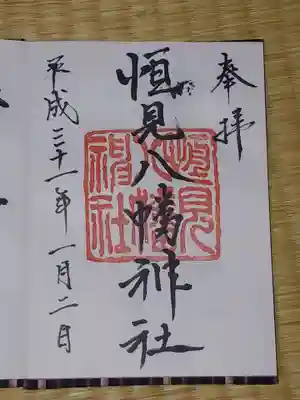 奉拝
恒見八幡神社
恒見
八幡
神社
平成三十一年一月二日